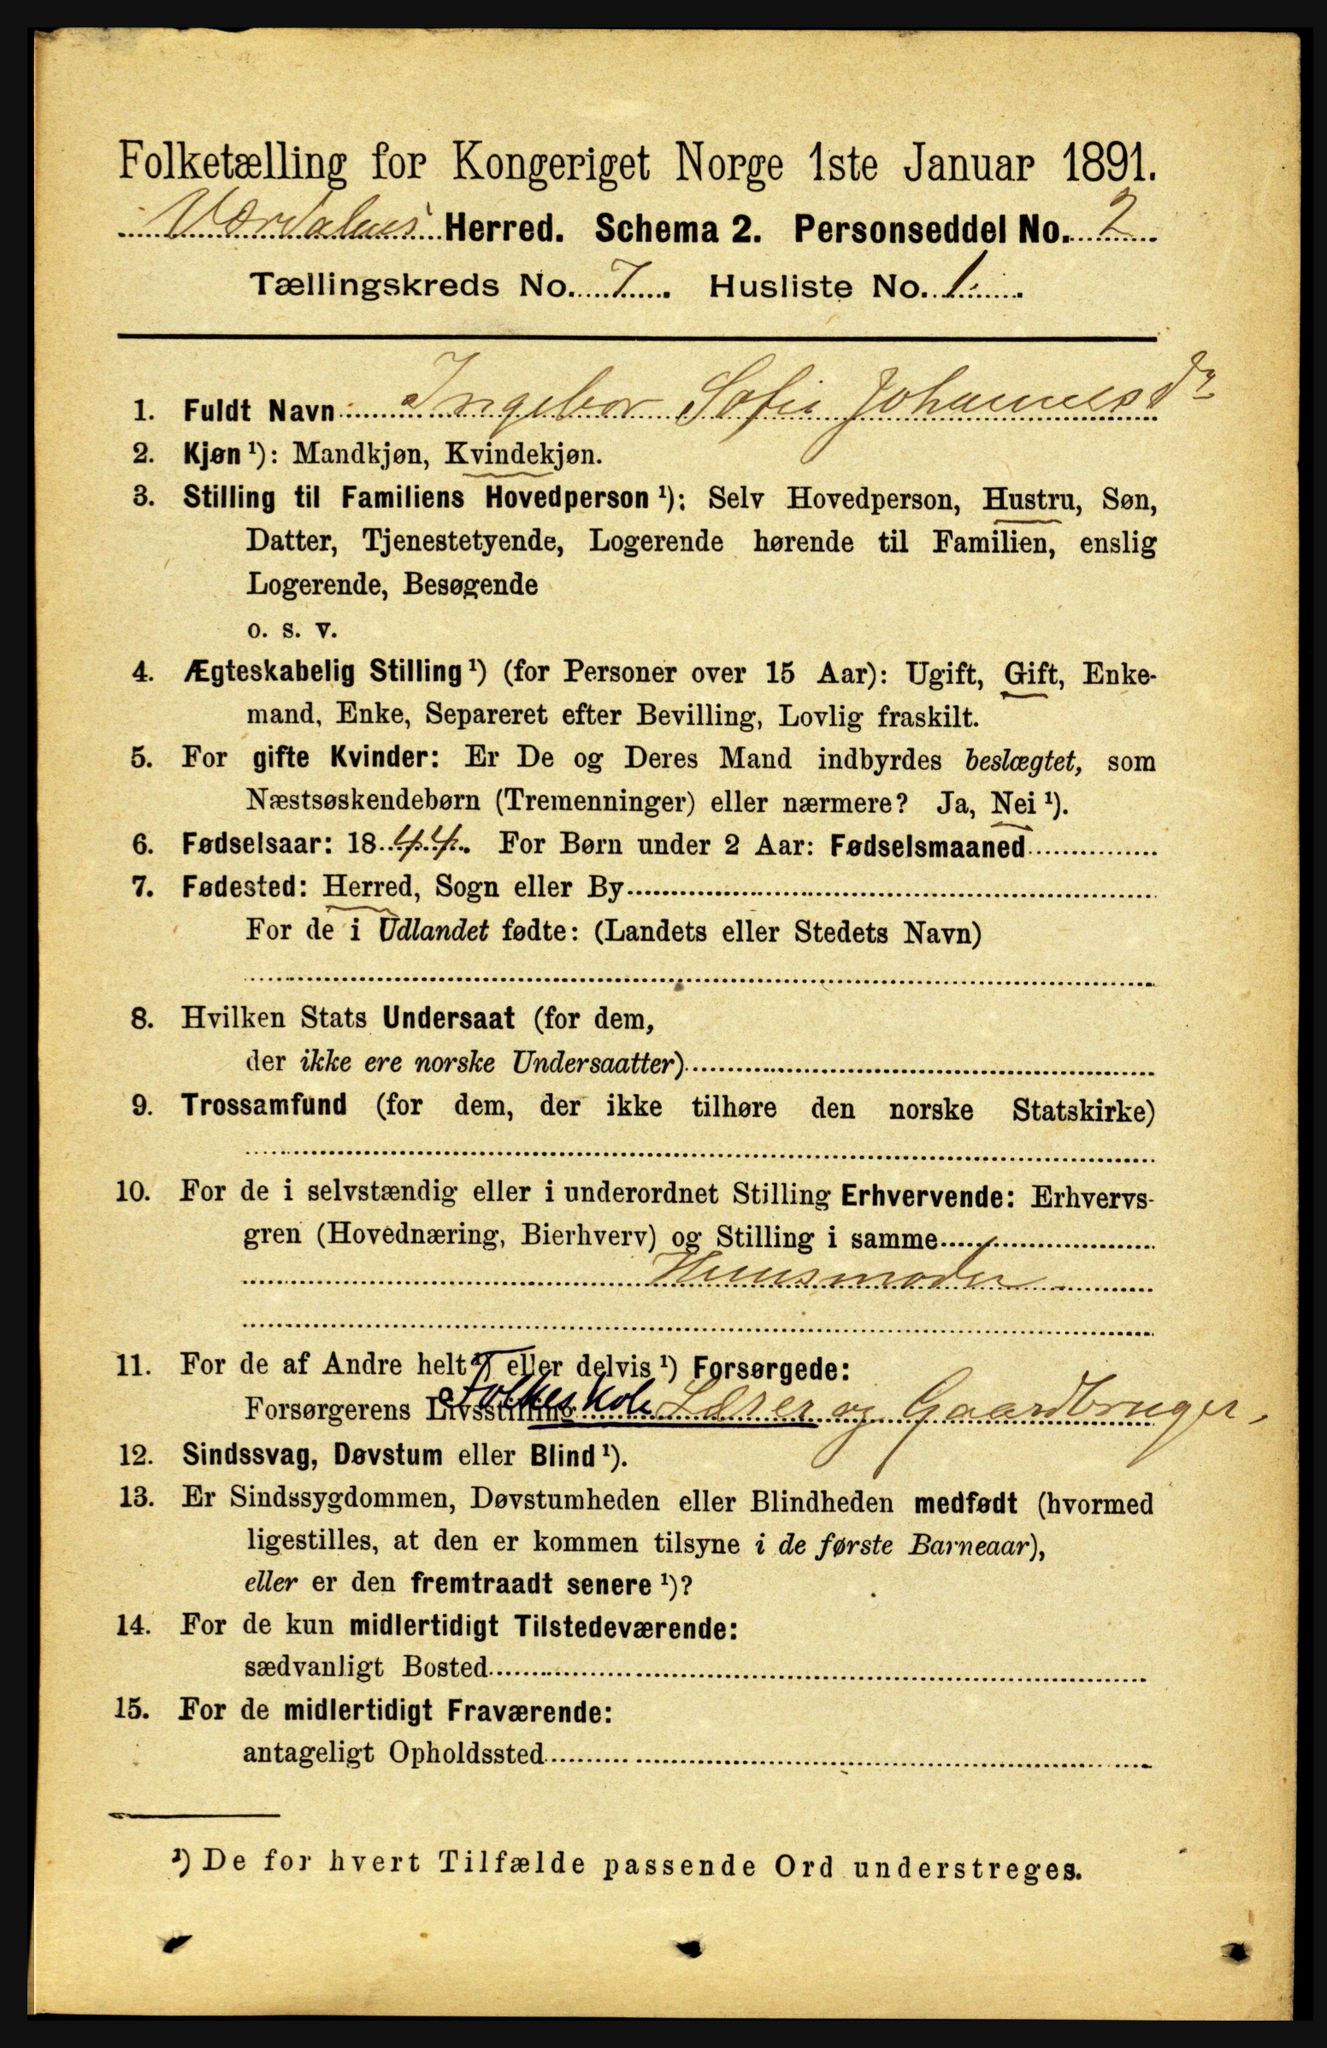 Folketælling for Kongeriget Norge 1ste Januar 1891.
Værdalens Herred. Schema 2. Personseddel No. 2
Tællingskreds No. 7. Husliste No. 1.
1. Fuldt Navn Ingebor Sofie Johannesdr
2. Kjøn ¹): Mandkjøn, Kvindekjøn.
3. Stilling til Familiens Hovedperson ¹): Selv Hovedperson, Hustru, Søn,
Datter, Tjenestetyende, Logerende hørende til Familien, enslig
Logerende, Besøgende
o. s. v.
4. Ægteskabelig Stilling ¹) (for Personer over 15 Aar): Ugift, Gift, Enke-
mand, Enke, Separeret efter Bevilling, Lovlig fraskilt.
5. For gifte Kvinder: Er De og Deres Mand indbyrdes beslægtet, som
Næstsøskendebørn (Tremenninger) eller nærmere? Ja, Nei ¹).
6. Fødselsaar: 1844. For Børn under 2 Aar: Fødselsmaaned
7. Fødested: Herred, Sogn eller By
For de i Udlandet fødte: (Landets eller Stedets Navn)
8. Hvilken Stats Undersaat (for dem,
der ikke ere norske Undersaatter)
9. Trossamfund (for dem, der ikke tilhøre den norske Statskirke)
10. For de i selvstændig eller i underordnet Stilling Erhvervende: Erhvervs-
gren (Hovednæring, Bierhverv) og Stilling i samme
Huusmoder
11. For de af Andre helt ¹) eller delvis ¹) Forsørgede:
Forsørgerens Livsstilling Folkeskole Lærer og Gaardbruger,
12. Sindssvag, Døvstum eller Blind ¹).
13. Er Sindssygdommen, Døvstumheden eller Blindheden medfødt (hvormed
ligestilles, at den er kommen tilsyne i de første Barneaar),
eller er den fremtraadt senere ¹)?
14. For de kun midlertidigt Tilstedeværende:
sædvanligt Bosted
15. For de midlertidigt Fraværende:
antageligt Opholdssted
¹) De for hvert Tilfælde passende Ord understreges.